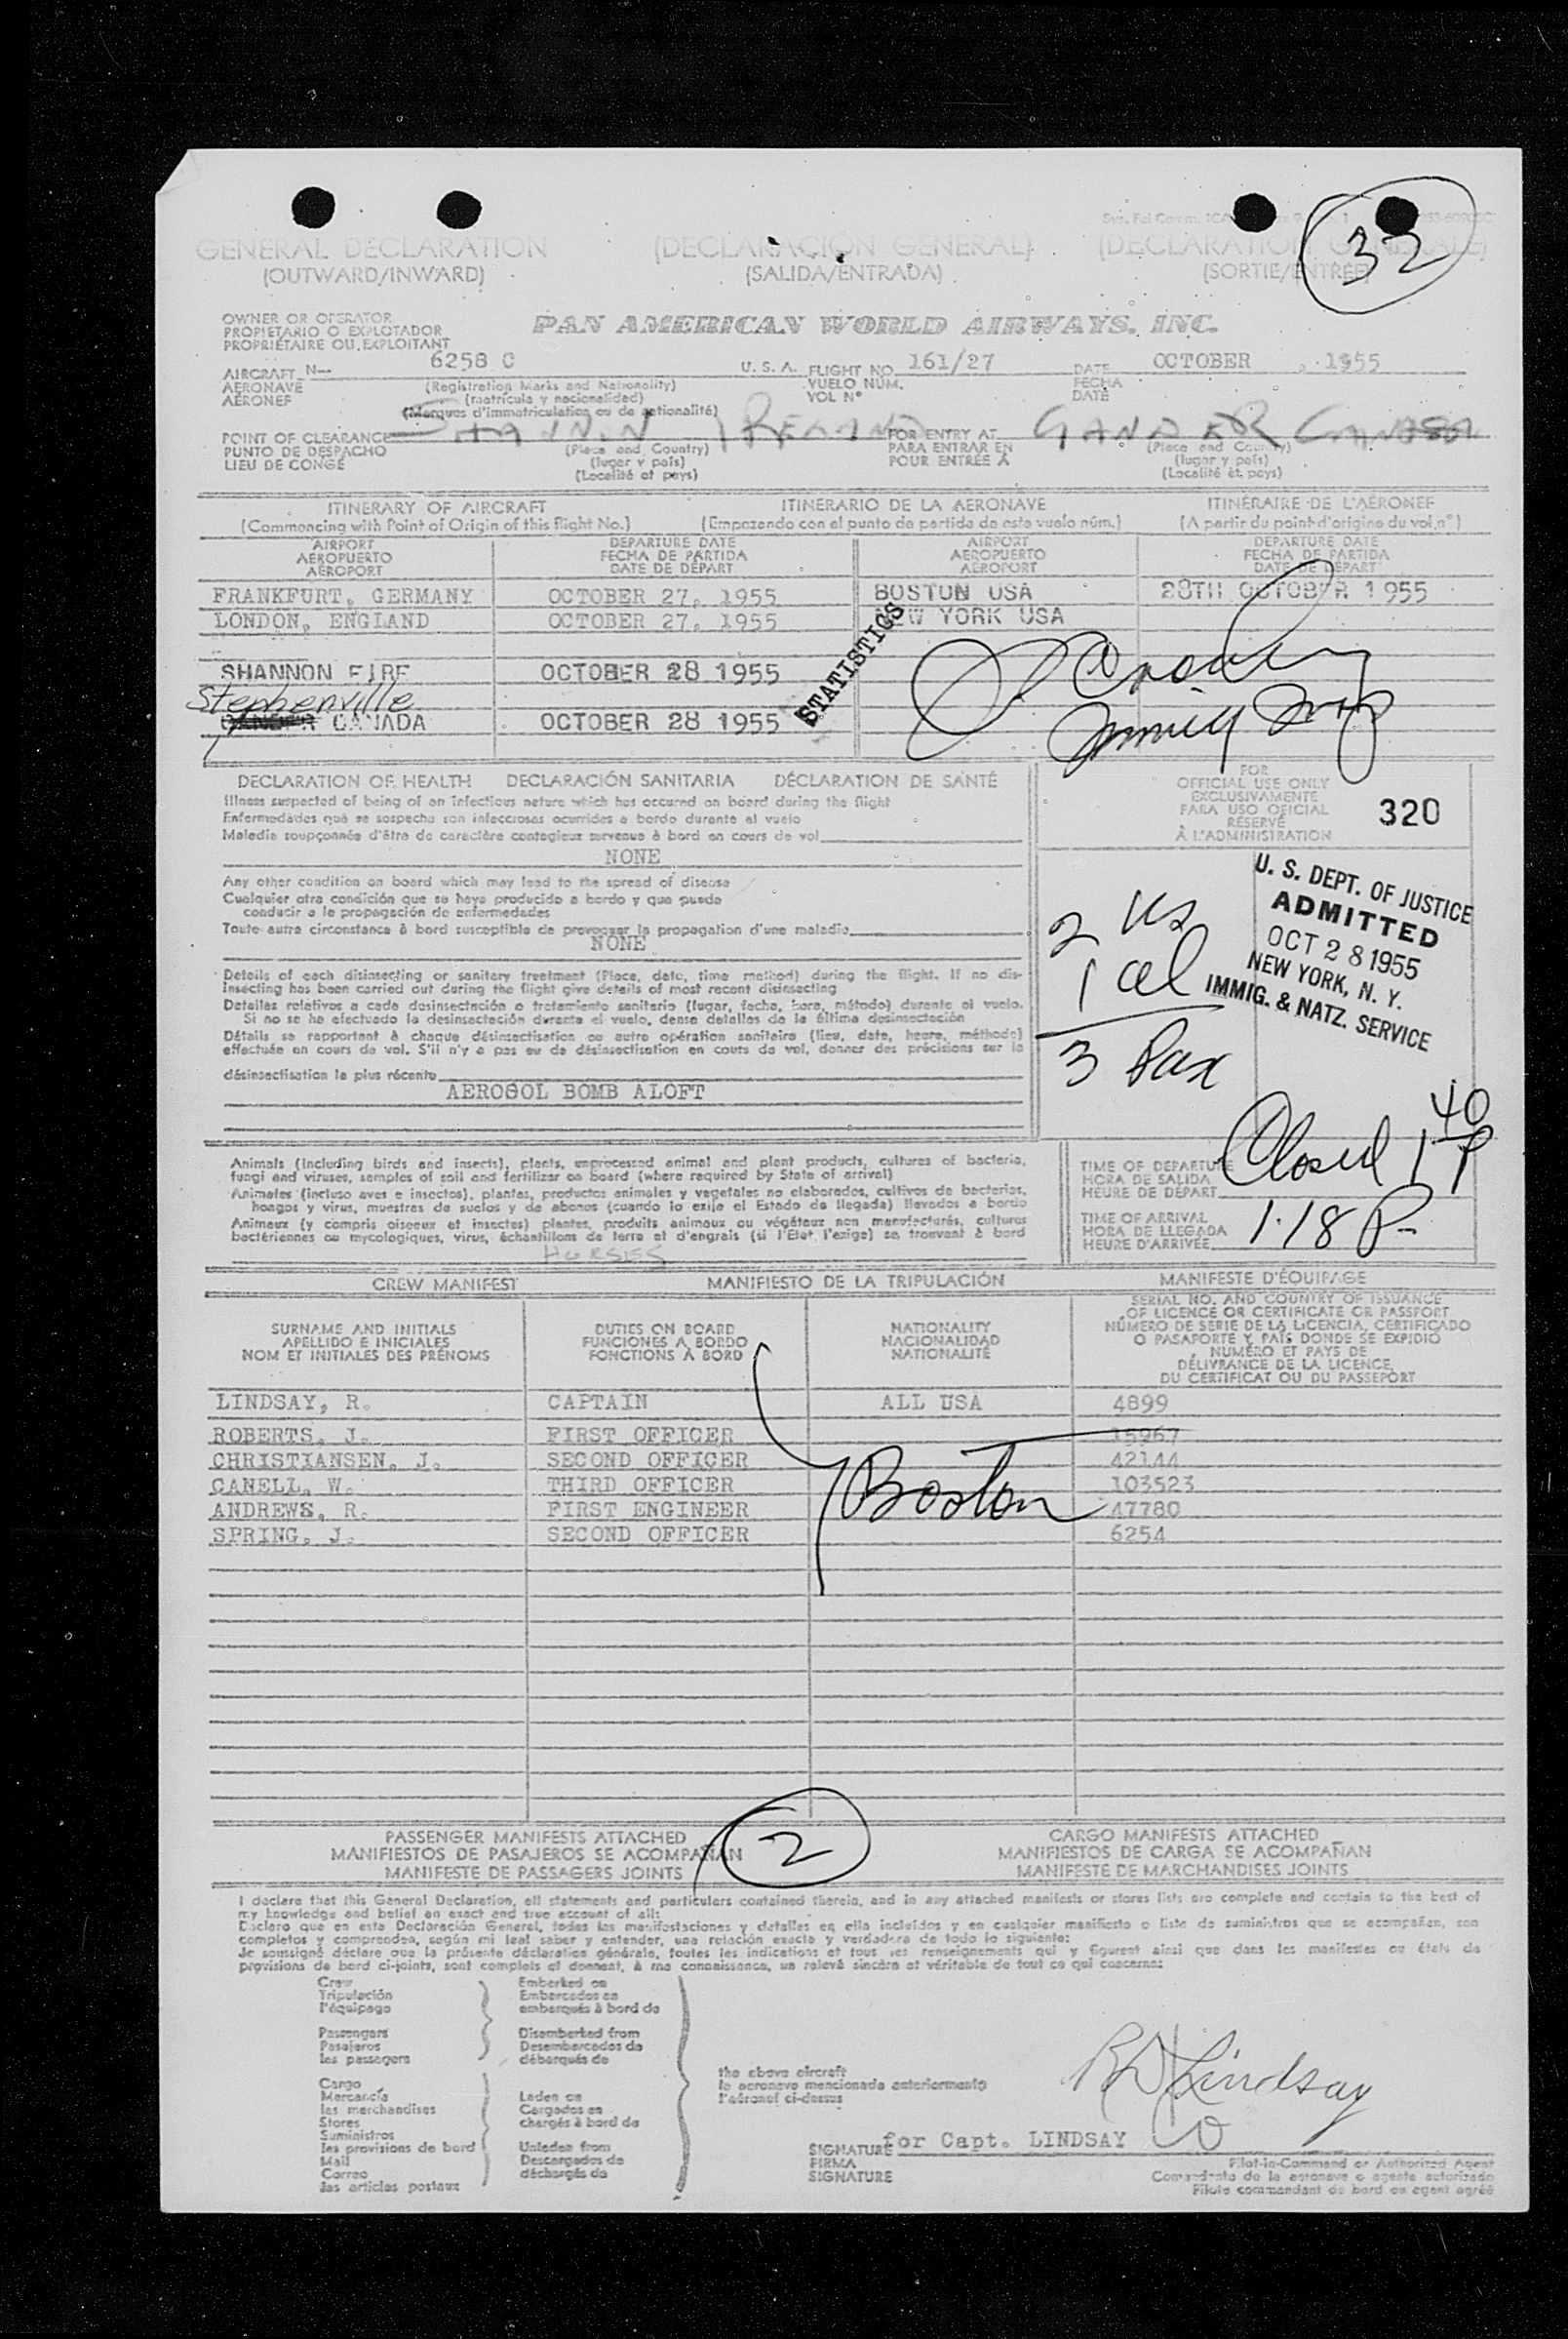 32
GENERAL DECLARATION (DECLARACIÓN GENERAL) (DECLARATION GENERALE)
(OUTWARD/INWARD) (SALIDA/ENTRADA) (SORTIE/ENTRÉE)
OWNER OR OPERATOR
PROPIETARIO O EXPLOTADOR
PROPRIÉTAIRE OU EXPLOITANT
PAN AMERICAN WORLD AIRWAYS, INC.
AIRCRAFT N— 6258 C U. S. A. FLIGHT NO. 161/27 DATE OCTOBER , 1955
AERONAVE (Registration Marks and Nationality) VUELO NÚM. FECHA
AÉRONEF (matrícula y nacionalidad) VOL Nº DATE
(Marques d'immatriculation ou de nationalité)
SHANNON IRELAND GANDER CANADA
POINT OF CLEARANCE (Place and Country) FOR ENTRY AT (Place and Country)
PUNTO DE DESPACHO (lugar y país) PARA ENTRAR EN (lugar y país)
LIEU DE CONGÉ (Localité et pays) POUR ENTRÉE À (Localité et pays)
ITINERARY OF AIRCRAFT ITINERARIO DE LA AERONAVE ITINÉRAIRE DE L'AÉRONEF
(Commencing with Point of Origin of this flight No.) (Empezando con el punto de partida de este vuelo núm.) (A partir du point d'origine du vol nº)
AIRPORT DEPARTURE DATE AIRPORT DEPARTURE DATE
AEROPUERTO FECHA DE PARTIDA AEROPUERTO FECHA DE PARTIDA
AÉROPORT DATE DE DÉPART AÉROPORT DATE DE DÉPART
FRANKFURT, GERMANY OCTOBER 27, 1955 BOSTON USA 28TH OCTOBER 1955
LONDON, ENGLAND OCTOBER 27, 1955 NEW YORK USA
STATISTICS
SHANNON EIRE OCTOBER 28 1955
Stephenville
GANDER CANADA OCTOBER 28 1955
DECLARATION OF HEALTH DECLARACIÓN SANITARIA DÉCLARATION DE SANTÉ
Illness suspected of being of an infectious nature which has occured on board during the flight
Enfermedades que se sospecha son infecciosas ocurridas a bordo durante el vuelo
Maladie soupçonnée d'être de caractère contagieux survenue à bord en cours de vol
NONE
Any other condition on board which may lead to the spread of disease
Cualquier otra condición que se haya producido a bordo y que pueda
conducir a la propagación de enfermedades
Toute autre circonstance à bord susceptible de provoquer la propagation d'une maladie
NONE
Details of each disinsecting or sanitary treatment (Place, date, time method) during the flight. If no dis-
insecting has been carried out during the flight give details of most recent disinsecting
Detalles relativos a cada desinsectación o tratamiento sanitario (lugar, fecha, hora, método) durante el vuelo.
Si no se ha efectuado la desinsectación durante el vuelo, dense detalles de la última desinsectación
Détails se rapportant à chaque désinsectisation ou autre opération sanitaire (lieu, date, heure, méthode)
effectuée en cours de vol. S'il n'y a pas eu de désinsectisation en cours de vol, donner des précisions sur la
désinsectisation la plus récente
AEROSOL BOMB ALOFT
FOR
OFFICIAL USE ONLY
EXCLUSIVAMENTE
PARA USO OFICIAL
RÉSERVÉ
À L'ADMINISTRATION
320
U. S. DEPT. OF JUSTICE
ADMITTED
OCT 28 1955
NEW YORK, N. Y.
IMMIG. & NATZ. SERVICE
2 us
1 al
3 Pax
Animals (including birds and insects), plants, unprocessed animal and plant products, cultures of bacteria,
fungi and viruses, samples of soil and fertilizer on board (where required by State of arrival)
Animales (incluso aves e insectos), plantas, productos animales y vegetales no elaborados, cultivos de bacterias,
hongos y virus, muestras de suelos y de abonos (cuando lo exije el Estado de llegada) llevados a bordo
Animaux (y compris oiseaux et insectes) plantes, produits animaux ou végétaux non manufacturés, cultures
bactériennes ou mycologiques, virus, échantillons de terre et d'engrais (si l'Etat l'exige) se trouvant à bord
HORSES
TIME OF DEPARTURE Closed 1 40 P
HORA DE SALIDA
HEURE DE DÉPART
TIME OF ARRIVAL
HORA DE LLEGADA 1.18 P
HEURE D'ARRIVÉE
CREW MANIFEST MANIFIESTO DE LA TRIPULACIÓN MANIFESTE D'ÉQUIPAGE
SURNAME AND INITIALS
APELLIDO E INICIALES
NOM ET INITIALES DES PRÉNOMS
DUTIES ON BOARD
FUNCIONES A BORDO
FONCTIONS À BORD
NATIONALITY
NACIONALIDAD
NATIONALITÉ
SERIAL NO. AND COUNTRY OF ISSUANCE
OF LICENCE OR CERTIFICATE OR PASSPORT
NÚMERO DE SERIE DE LA LICENCIA, CERTIFICADO
O PASAPORTE Y PAÍS DONDE SE EXPIDIÓ
NUMÉRO ET PAYS DE
DÉLIVRANCE DE LA LICENCE,
DU CERTIFICAT OU DU PASSEPORT
LINDSAY, R. CAPTAIN ALL USA 4899
ROBERTS, J. FIRST OFFICER 15967
CHRISTIANSEN, J. SECOND OFFICER 42144
CANELL, W. THIRD OFFICER 103523
ANDREWS, R. FIRST ENGINEER 47780
SPRING, J. SECOND OFFICER 6254
Boston
2
PASSENGER MANIFESTS ATTACHED CARGO MANIFESTS ATTACHED
MANIFIESTOS DE PASAJEROS SE ACOMPAÑAN MANIFIESTOS DE CARGA SE ACOMPAÑAN
MANIFESTE DE PASSAGERS JOINTS MANIFESTE DE MARCHANDISES JOINTS
I declare that this General Declaration, all statements and particulars contained therein, and in any attached manifests or stores lists are complete and contain to the best of
my knowledge and belief an exact and true account of all:
Declaro que en esta Declaración General, todas las manifestaciones y detalles en ella incluidos y en cualquier manifiesto o lista de suministros que se acompañen, son
completos y comprenden, según mi leal saber y entender, una relación exacta y verdadera de todo lo siguiente:
Je soussigné déclare que la présente déclaration générale, toutes les indications et tous les renseignements qui y figurent ainsi que dans les manifestes ou états de
provisions de bord ci-joints, sont complets et donnent, à ma connaissance, un relevé sincère et véritable de tout ce qui concerne:
Crew
Tripulación
l'équipage
Passengers
Pasajeros
les passagers
Cargo
Mercancía
les merchandises
Stores
Suministros
les provisions de bord
Mail
Correo
les articles postaux
Embarked on
Embarcados en
embarqués à bord de
Disembarked from
Desembarcados de
débarqués de
Laden on
Cargados en
chargés à bord de
Unladen from
Descargados de
déchargés de
the above aircraft
la aeronave mencionada anteriormente
l'aéronef ci-dessus
RD Lindsay
SIGNATURE for Capt. LINDSAY
FIRMA
SIGNATURE
Pilot-in-Command or Authorized Agent
Comandante de la aeronave o agente autorizado
Pilote commandant de bord ou agent agréé